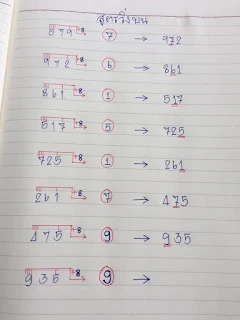 สูตรวิ่งบน
579 +8 7 → 972
972 +8 6 → 861
861 +8 1 → 517
517 +8 5 → 725
725 +8 1 → 261
261 +8 7 → 475
475 +8 9 → 935
935 +8 9 →